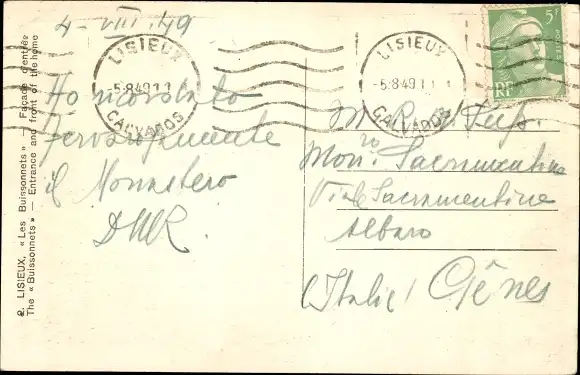 4-VIII.49
Ho ricordato
fervorosamente
il Monastero
LISIEUX
-5-8-49
CALVADOS
LISIEUX
-5-8-49
CALVADOS
5F
RF
POSTES
M. Rev.
Mon.ro Sacramentine
Via Sacramentine
Albaro
(Italie) Gênes
2. LISIEUX, « Les Buissonnets » — Façade d'entrée
The « Buissonnets » — Entrance and front of the home